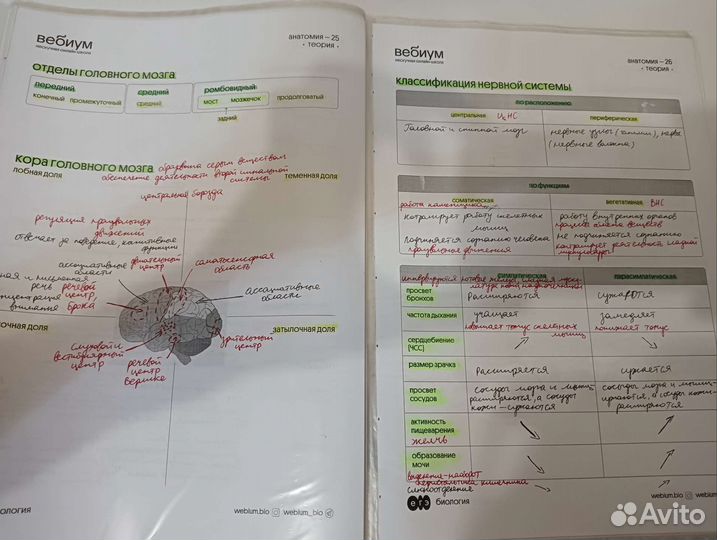 вебиум
нескучная онлайн-школа
анатомия – 25
• теория •
отделы головного мозга
передний
средний
ромбовидный
конечный промежуточный
средний
мост мозжечок продолговатый
задний
кора головного мозга образована серым веществом
лобная доля
обеспечение деятельности второй сигнальной системы
теменная доля
центральная борозда
регуляция произвольных
движений
отвечает за поведение, когнитивные
функции
ассоциативные
области
двигательный
центр
соматосенсорная
область
речь
речевой
центр,
Брока
внимания
ассоциативные
области
затылочная доля
слуховой и
вестибулярный
центр
речевой
центр
Вернике
зрительный
центр
биология
webium.bio
webium_bio
вебиум
нескучная онлайн-школа
анатомия – 26
• теория •
классификация нервной системы
по расположению
центральная ЦНС
периферическая
Головной и спинной мозг
нервные узлы (ганглии), нервы
(нервные волокна)
по функциям
соматическая
вегетативная ВНС
работа
контролирует работу скелетных
мышц
подчиняется сознанию человека
произвольные движения
работу внутренних органов
процессы обмена веществ
не подчиняется сознанию
контролирует
симпатическая
парасимпатическая
просвет
бронхов
расширяются
сужаются
частота дыхания
учащает
повышает тонус скелетных
мышц
замедляет
понижает тонус
сердцебиение
(ЧСС)
размер зрачка
расширяется
сужается
просвет
сосудов
сосуды мозга и мышц
расширяются, а сосуды
кожи – сужаются
сосуды мозга и мышц –
сужаются, а сосуды кожи –
расширяются
активность
пищеварения
желчь
образование
мочи
слюноотделение
егэ
биология
webium.bio
webium_
Avito